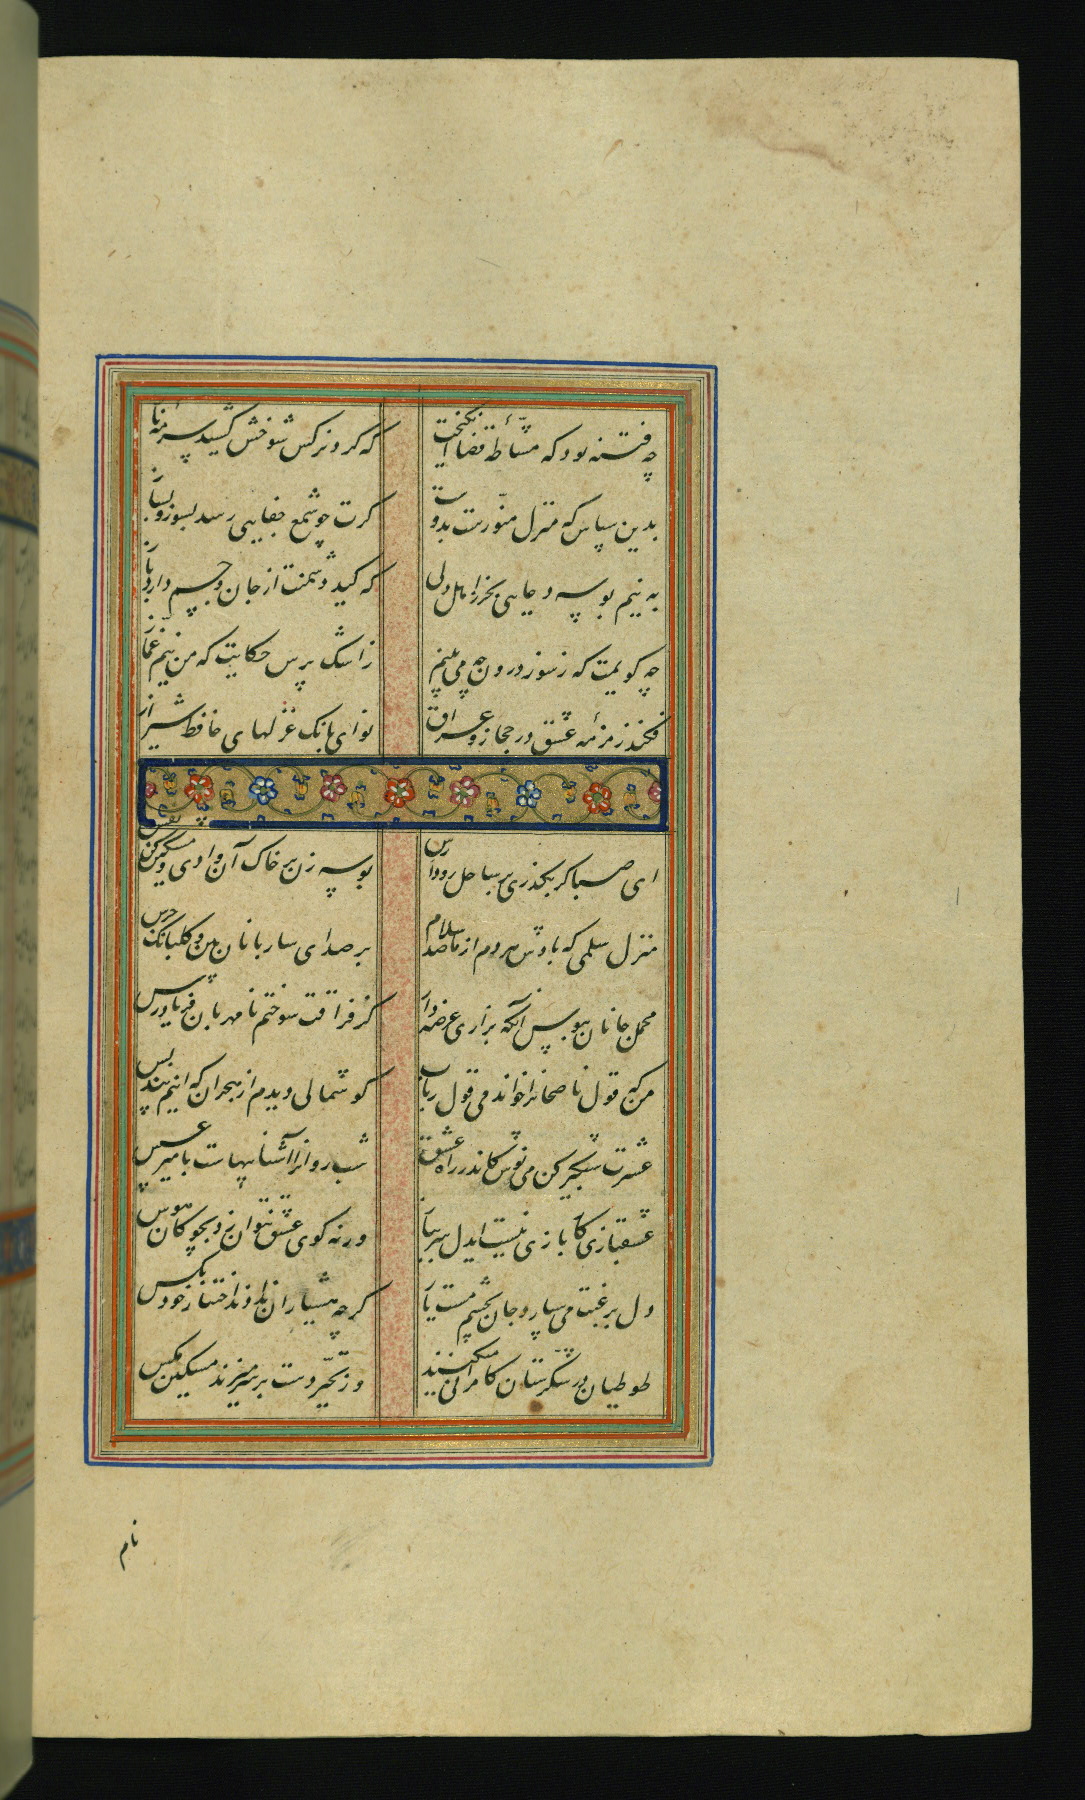 چه فتنه بود که مشاطهٔ قضا انگیخت که کرد نرکس شوخش کشید سرمه ناز
بدین سپاس که منزل منورست بدوست کرت چو شمع جفایی رسد بسوز و بساز
به نیم بوسه دعایی بخر ز اهل دلی که کید دشمنت از جان و جسم دارد باز
چه کویمت که ز سوز درون چه می بینم ز اشک پرس حکایت که من نیم غماز
فکند زمزمهٔ عشق در حجاز و عراق نوای بانک غزلهای حافظ شیراز
ای صبا کر بکذری بر ساحل رود ارس بوسه زن بر خاک آن وادی و مشکین کن نفس
منزل سلمی که بادش هردم از ما صد سلام بر صدای ساربانان بین و کلبانک جرس
محمل جانان ببوس آنکه بزاری عرضه دار کز فراقت سوختم نامهربان فریادرس
من که قول ناصحانرا خواندمی قول رباب کوشمالی دیدم از هجران که اینم پند بس
عشرت شبکیر کن می نوش کاندر راه عشق شب روانرا آشناییهاست با میر عسس
عشقبازی کار بازی نیست ایدل سر بباز ورنه کوی عشق نتوان زد بچوکان هوس
دل برغبت می سپارد جان بچشم مست یار کرچه هشیاران ندادند اختیار خود بکس
طوطیان در شکرستان کامرانی میکنند وز تحیر دست بر سر میزند مسکین مکس
نام